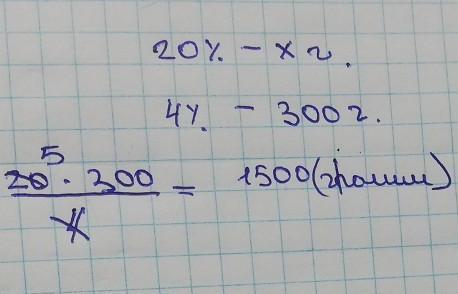 20% - x г.
4% - 300 г.
5
20 · 300 = 1500 (грамм)
4